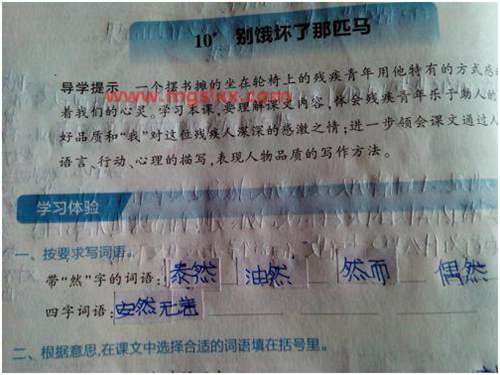 10* 别饿坏了那匹马
导学提示 一个摆书摊的坐在轮椅上的残疾青年用他特有的方式感
www.mgslxx.com
着我们的心灵。学习本课,要理解课文内容,体会残疾青年乐于助人的
好品质和“我”对这位残疾人深深的感激之情;进一步领会课文通过人
语言、行动、心理的描写,表现人物品质的写作方法。
学习体验
一、按要求写词语。
带“然”字的词语:泰然 油然 然而 偶然
四字词语:安然无恙
二、根据意思,在课文中选择合适的词语填在括号里。